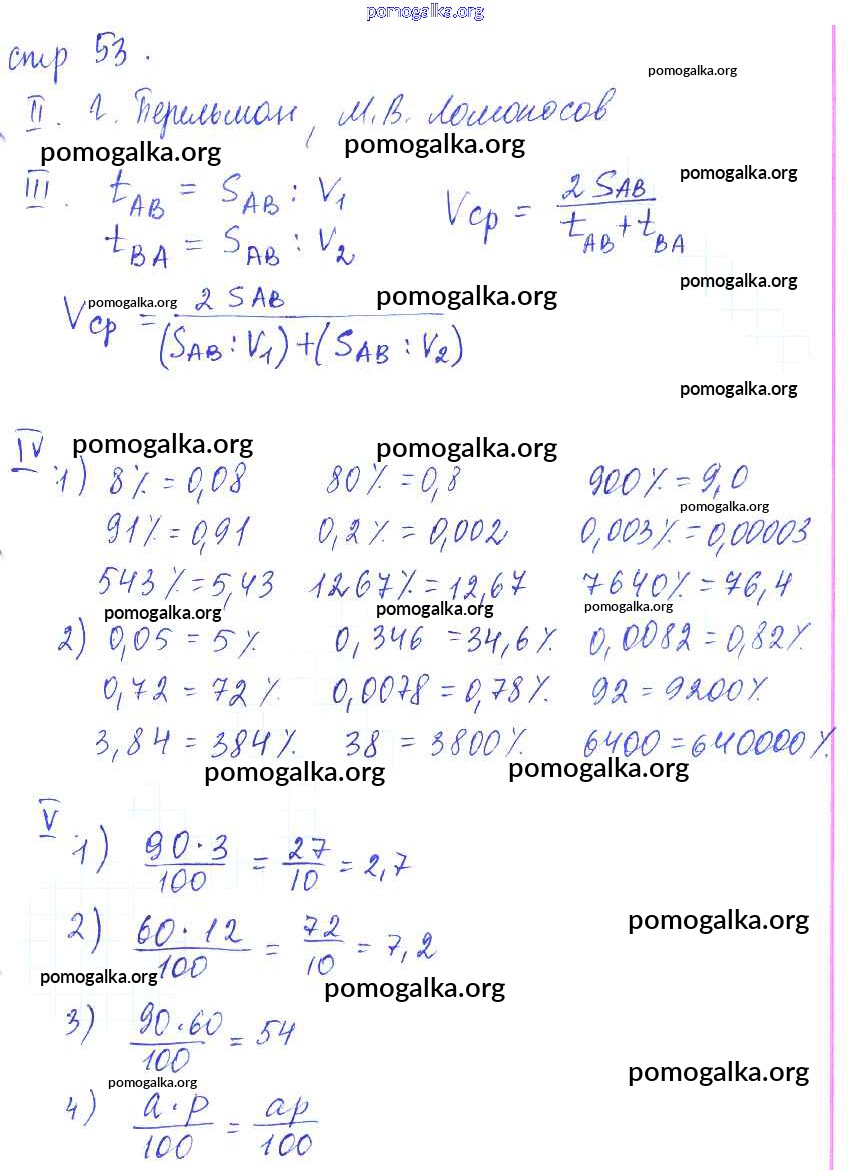 pomogalka.org
стр 53.
pomogalka.org
II. Г. Перельман, М.В. Ломоносов
pomogalka.org pomogalka.org
III. t_AB = S_AB : V_1 V_ср = 2 S_AB / (t_AB + t_BA) pomogalka.org
t_BA = S_AB : V_2
pomogalka.org
V_ср = 2 S_AB / ((S_AB : V_1) + (S_AB : V_2)) pomogalka.org pomogalka.org
pomogalka.org
IV pomogalka.org pomogalka.org
1) 8% = 0,08 80% = 0,8 900% = 9,0
pomogalka.org
91% = 0,91 0,2% = 0,002 0,003% = 0,00003
543% = 5,43 1267% = 12,67 7640% = 76,4
pomogalka.org pomogalka.org pomogalka.org
2) 0,05 = 5% 0,346 = 34,6% 0,0082 = 0,82%
0,72 = 72% 0,0078 = 0,78% 92 = 9200%
3,84 = 384% 38 = 3800% 6400 = 640000%
pomogalka.org pomogalka.org
V
1) 90·3/100 = 27/10 = 2,7
2) 60·12/100 = 72/10 = 7,2 pomogalka.org
pomogalka.org pomogalka.org
3) 90·60/100 = 54
pomogalka.org pomogalka.org
4) a·p/100 = ap/100